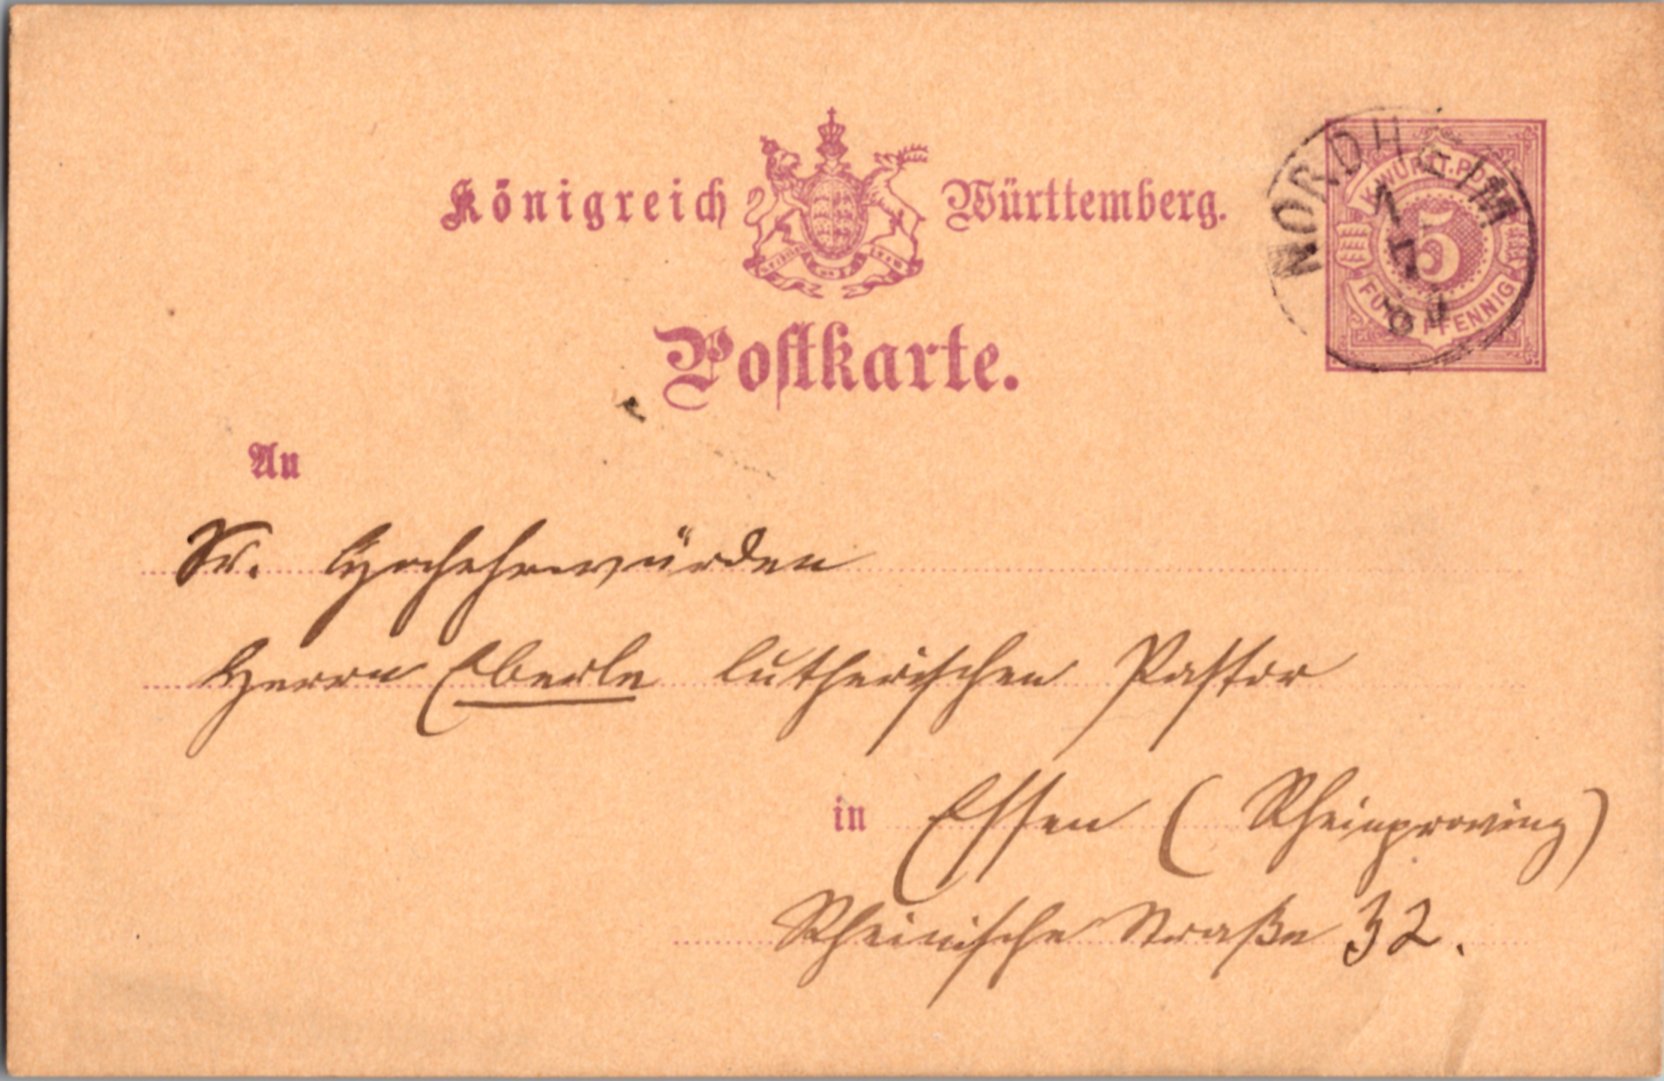 Königreich Württemberg.
Postkarte.
NORDHEIM
K.WÜRTT.POST
5
FÜNF PFENNIG
An
Sr. Hochehrwürden
Herrn Eberle lutherischen Pastor
in Essen (Rheinproving)
Rheinische Straße 32.